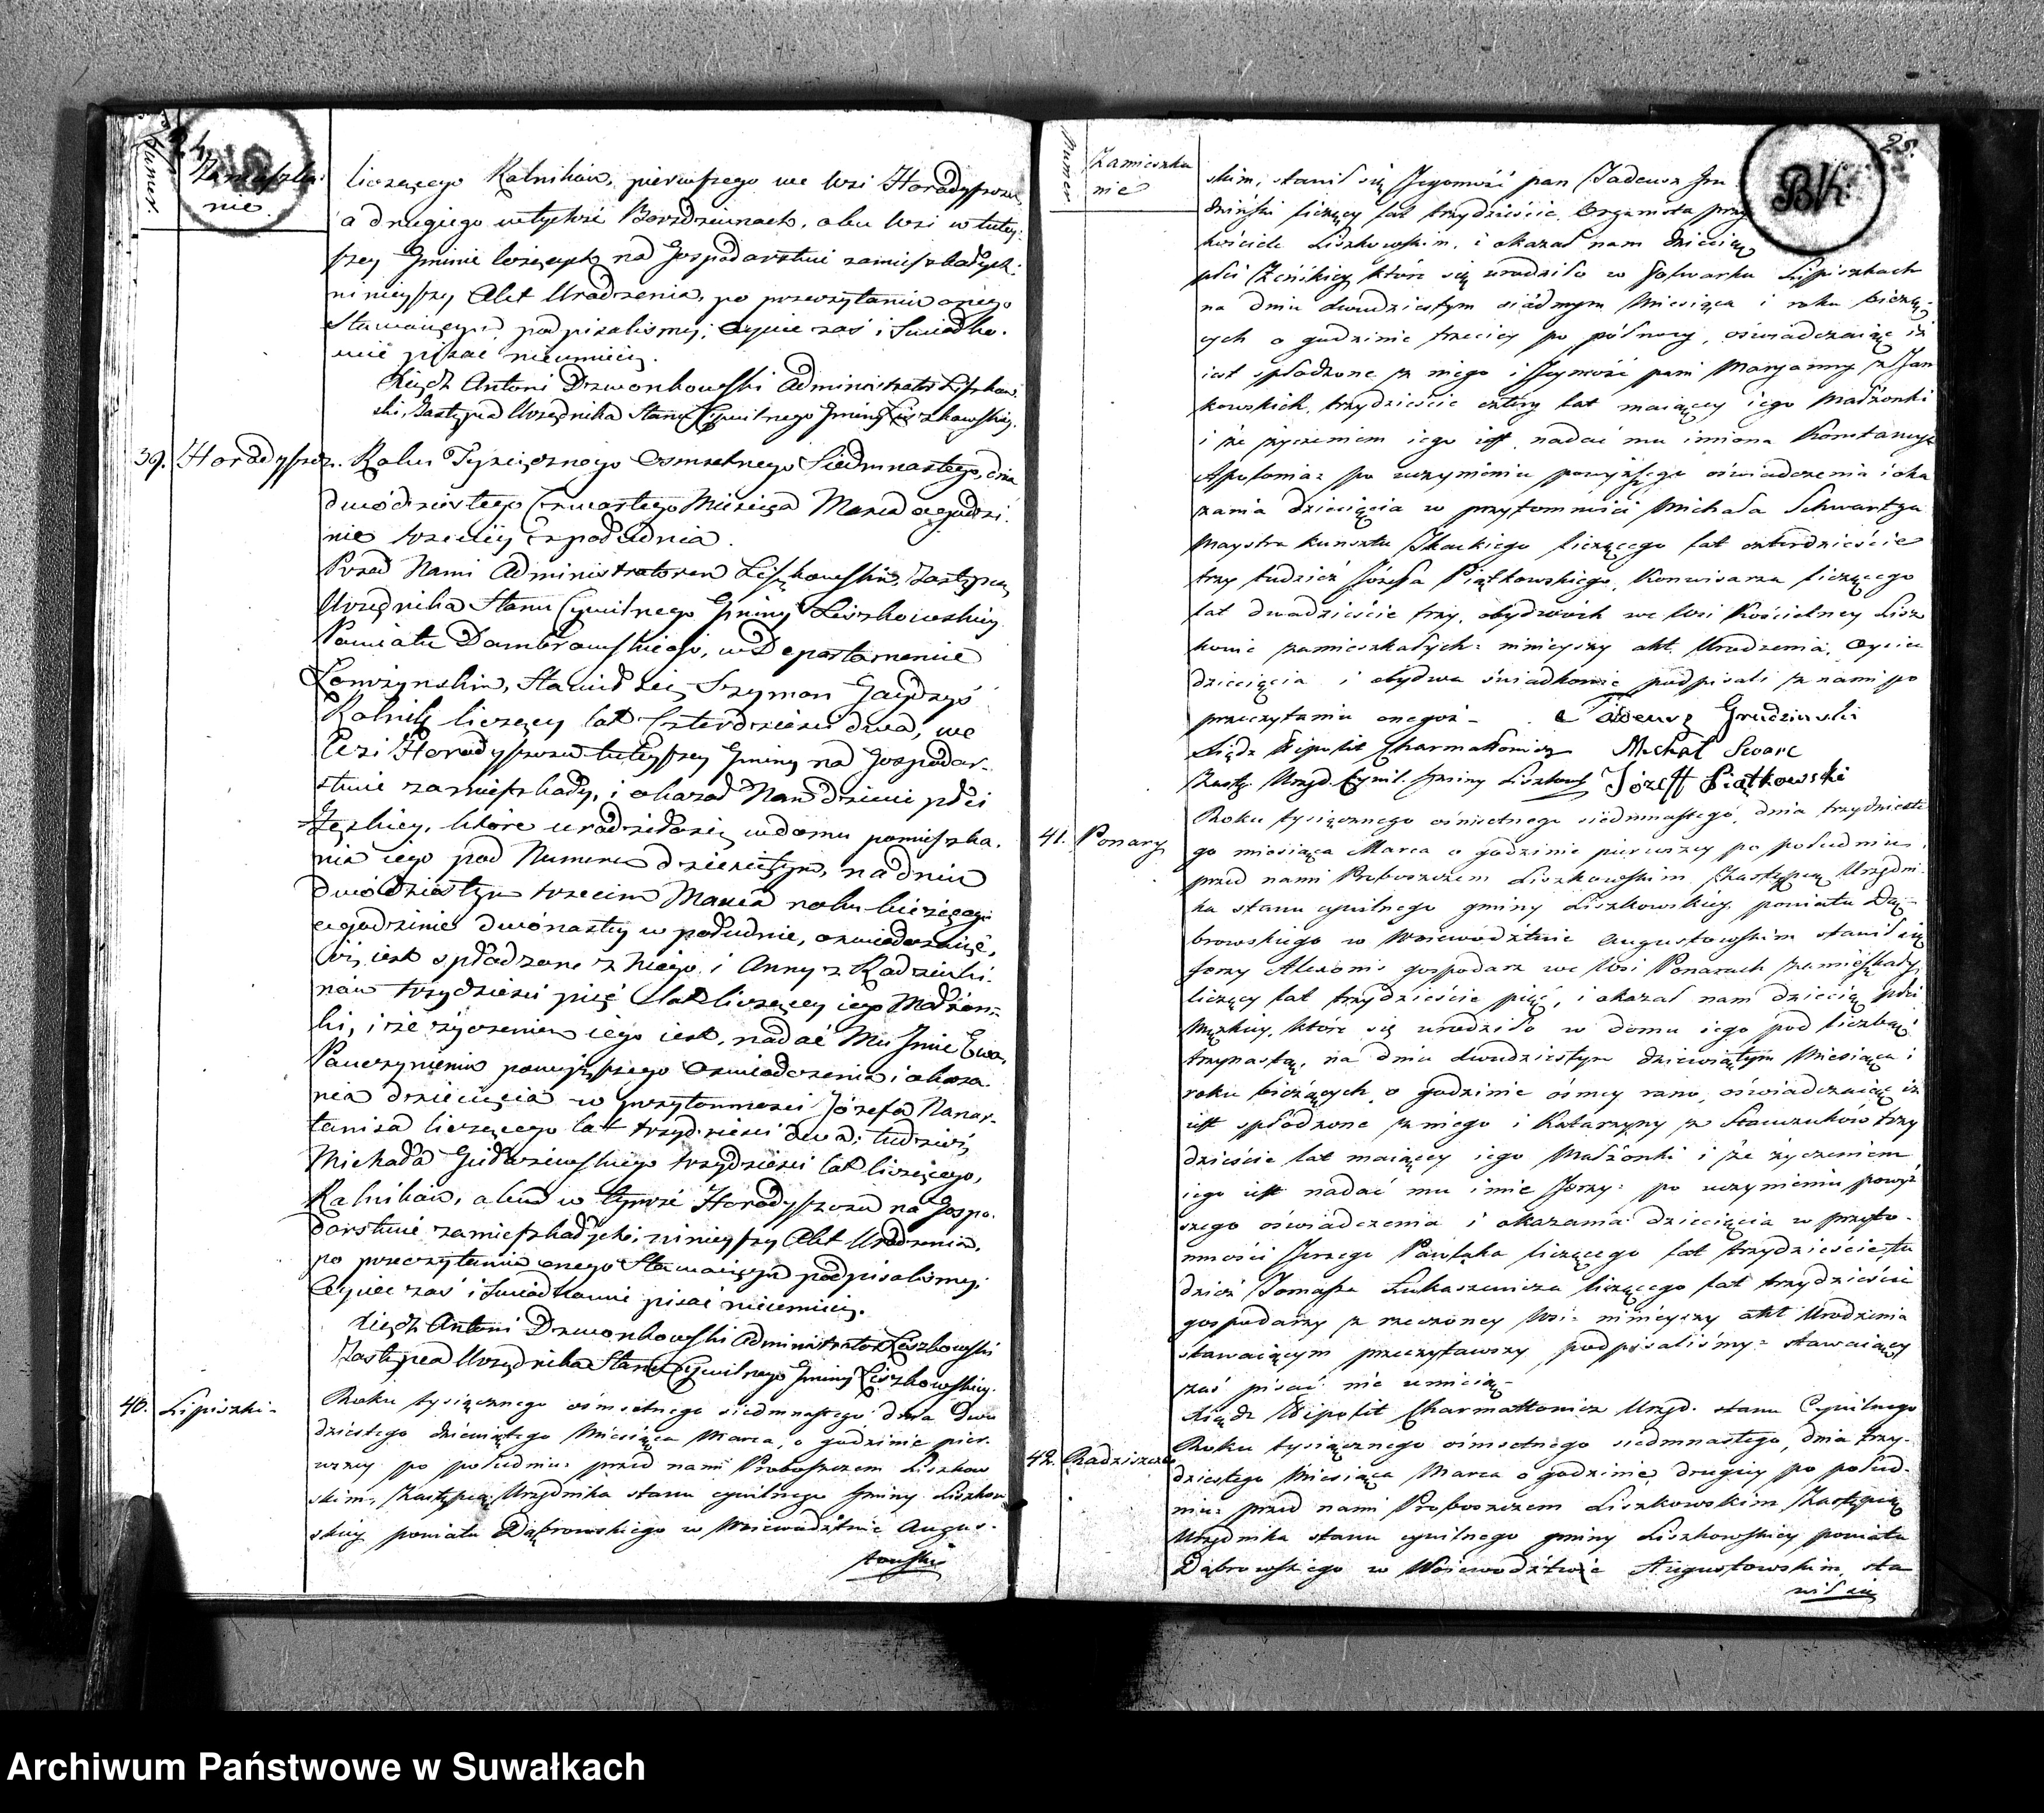 24.
Numer.
Zamieszka
nie.
liczącego Rolników, pierwszego we Wsi Horadyszcze,
a drugiego w tychże Borzdziunach, obu Wsi w tutey-
szey Gminie leżących na Gospodarstwie zamieszkałych:
ninieyszy Akt Urodzenia, po przeczytaniu onego
Stawaiącym podpisalismy; Oycie zaś i Swiadko-
wie pisać nieumieią.
Xiądz Antoni Dzwonkowski Administrator Liszkow-
ski, Zastępca Urzędnika Stanu Cywilnego Gminy Liszkowskiey.
39. Horodyszcz. Roku Tysiącznego Osmsetnego Siedmnastego, dnia
dwódziestego Czwartego Miesiąca Marca o godzi-
nie trzeciey z południa.
Przed Nami Administratorem Liszkowskim, Zastępcą
Urzędnika Stanu Cywilnego Gminy Liszkowskiey
Powiatu Dombrowskiego, w Departamencie
Łomżynskim, Stawił się Szymon Gaydzys
Rolnik liczący lat Czterdzieści dwa, we
Wsi Horodyszczu tuteyszey Gminy na Gospodar-
stwie zamieszkały, i okazał Nam dziecie płci
Żęskiey, które urodziło się w domu pomieszka-
nia iego pod Numerem dziewiętym, na dniu
dwódziestym trzecim Marca roku bieżącego
o godzinie dwónastey w południe, oswiadczaiąc,
iż iest spłodzone z Niego i Anny z Radziuki-
now trzydzieści pięć lat liczącey iego Małżon-
ki, i że życzeniem iego iest, nadać Mu Imie Ewa,
Pouczynieniu powyższego Oswiadczenia i okaza-
nia dziecięcia w przytomnosci Józefa Nanar-
tanisa liczącego lat trzydzieści dwa: tudzież
Michała trzydzieści lat liczącego,
Rolników, obud w tymże Horodyszczu na Gospo-
darstwie zamieszkałych: ninieyszy Akt Urodzenia,
po przeczytaniu onego Stawaiącym podpisalismy;
Oyciec zaś i Swiadkowie pisać nieumieią.
Xiądz Antoni Dzwonkowski Administrator Liszkowski
Zastępca Urzędnika Stanu Cywilnego Gminy Liszkowskiey.
40. Lipiszki- Roku tysiącznego ośmsetnego siedmnastego dnia dwu
dziestego dziewiątego Miesiąca Marca, o godzinie pier-
wszey po południu: przed nami Proboszczem Liszkow
skim, Zastępcą Urzędnika stanu cywilnego Gminy Liszkow
skiey powiatu Dąbrowskiego w Woiewodztwie Augus-
towskim
25.
BK:
Numer
Zamieszka
nie
skim, stawił się Jegomość pan Tadeusz Gru
dziński liczący lat trzydzieście, Organista przy
kościele Liszkowskim, i okazał nam dziecię
płci Żeńskiey które się urodziło w folwarku Lipiszkach
na dniu dwudziestym siódmym Miesiąca i roku bieżą-
cych o godzinie trzeciey po północy, oświadczaiąc iż
iest spłodzone z niego i Jeymość pani Maryanny z Jan
kowskich, trzydzieście cztery lat maiącey iego Małżonki
i że życzeniem iego iest nadać mu imiona Konstancya
Apolonia: po uczynieniu powyższego oświadczenia i oka
zania dziecięcia w przytomności Michała Schwartza
Maystra kunsztu Tkackiego liczącego lat czterdzieście
trzy tudzież Józefa Piątkowskiego, Konwisarza liczącego
lat dwadzieście trzy, obydwóch we Wsi Kościelney Lisz
kowie zamieszkałych: ninieyszy akt Urodzenia, Oyciec
dziecięcia i obydwa świadkowie podpisali z nami po
przeczytaniu onegoż- Tadeusz Grudzinski
Xiądz Hipolit Charmattowicz Michał Swarc
Zastę. Urzęd. Cywil. Gminy Liszkows Józeff Piątkowski
41. Ponary Roku tysiącznego ośmsetnego siedmnastego, dnia trzydzieste
go miesiąca Marca o godzinie pierwszey po południu,
przed nami Proboszczem Liszkowskim Zastępcą Urzędni-
ka stanu cywilnego gminy Liszkowskiey powiatu Dą-
browskiego w Woiewodztwie Augustowskim stawił się
Jerzy gospodarz we Wsi Ponarach zamieszkały,
liczący lat trzydzieście pięć, i okazał nam dziecię płci
Męzkiey, które się urodziło w domu iego pod liczbą
trzynastą, na dniu dwudziestym dziewiątym Miesiąca i
roku bieżących o godzinie ósmey rano, oświadczaiąc iż
iest spłodzone z niego i Katarzyny z trzy
dzieście lat maiącey iego Małżonki i że życzeniem
iego iest nadać mu imie Jerzy: po uczynieniu powyż
szego oświadczenia i okazania dziecięcia w przyto-
mności Jerzego Pawlaka liczącego lat trzydzieście, tu
dzież Tomasza Łukaszewicza liczącego lat trzydzieście
gospodarzy z rzeczoney Wsi: ninieyszy akt Urodzenia
stawaiącym przeczytawszy podpisaliśmy: stawaiący
zaś pisać nie umieią-
Xiądz Hipolit Charmattowicz Urzęd. stanu Cywilnego
42. Radziszcze Roku tysiącznego ośmsetnego siedmnastego, dnia trzy-
dziestego Miesiąca Marca o godzinie drugiey po połud-
niu: przed nami Proboszczem Liszkowskim Zastępcą
Urzędnika stanu cywilnego gminy Liszkowskiey powiatu
Dąbrowskiego w Woiewodztwie Augustowskim, sta
wił się
Archiwum Państwowe w Suwałkach